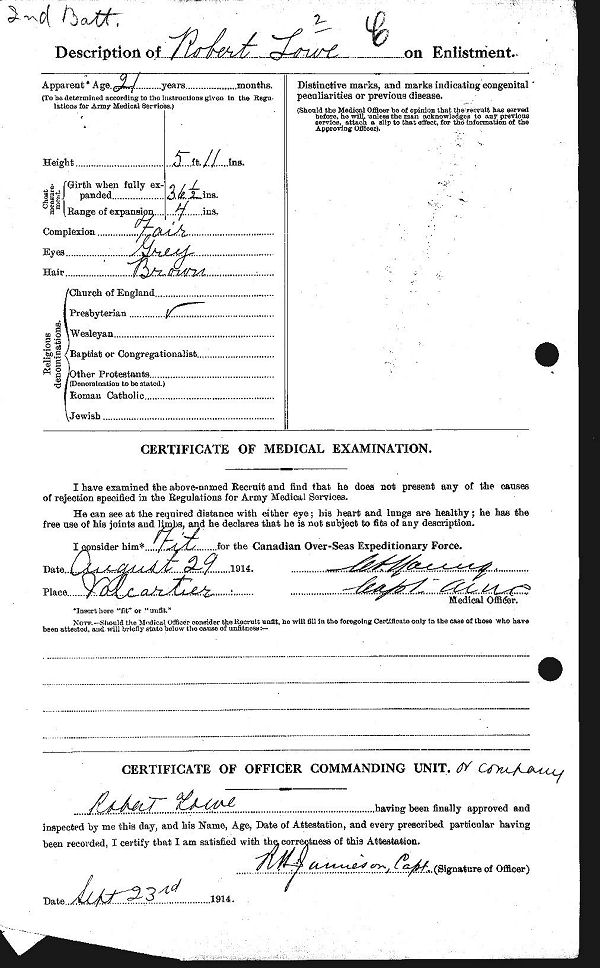 2nd Batt.
2
Description of Robert Lowe C on Enlistment.
Apparent Age 21 years months.
(To be determined according to the instructions given in the Regulations for Army Medical Services.)
Height 5 ft. 11 ins.
Chest measurement.
Girth when fully expanded 36 1/2 ins.
Range of expansion 4 ins.
Complexion Fair
Eyes Grey
Hair Brown
Religious denominations.
Church of England
Presbyterian ✓
Wesleyan
Baptist or Congregationalist
Other Protestants
(Denomination to be stated.)
Roman Catholic
Jewish
Distinctive marks, and marks indicating congenital
peculiarities or previous disease.
(Should the Medical Officer be of opinion that the recruit has served
before, he will, unless the man acknowledges to any previous
service, attach a slip to that effect, for the information of the
Approving Officer).
CERTIFICATE OF MEDICAL EXAMINATION.
I have examined the above-named Recruit and find that he does not present any of the causes
of rejection specified in the Regulations for Army Medical Services.
He can see at the required distance with either eye; his heart and lungs are healthy; he has the
free use of his joints and limbs, and he declares that he is not subject to fits of any description.
I consider him* Fit for the Canadian Over-Seas Expeditionary Force.
Date August 29 1914.
Place Valcartier
Capt.
Medical Officer.
*Insert here "fit" or "unfit."
NOTE.—Should the Medical Officer consider the Recruit unfit, he will fill in the foregoing Certificate only in the case of those who have
been attested, and will briefly state below the cause of unfitness:—
CERTIFICATE OF OFFICER COMMANDING UNIT. or Company
Robert Lowe having been finally approved and
inspected by me this day, and his Name, Age, Date of Attestation, and every prescribed particular having
been recorded, I certify that I am satisfied with the correctness of this Attestation.
Jamieson, Capt. (Signature of Officer)
Date Sept 23rd 1914.